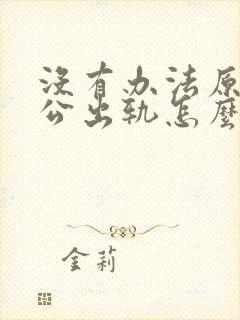 没有办法原
公出轨怎麽
金莉